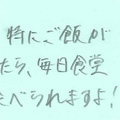 特にご飯が
たら、毎日食堂
べられますよ!